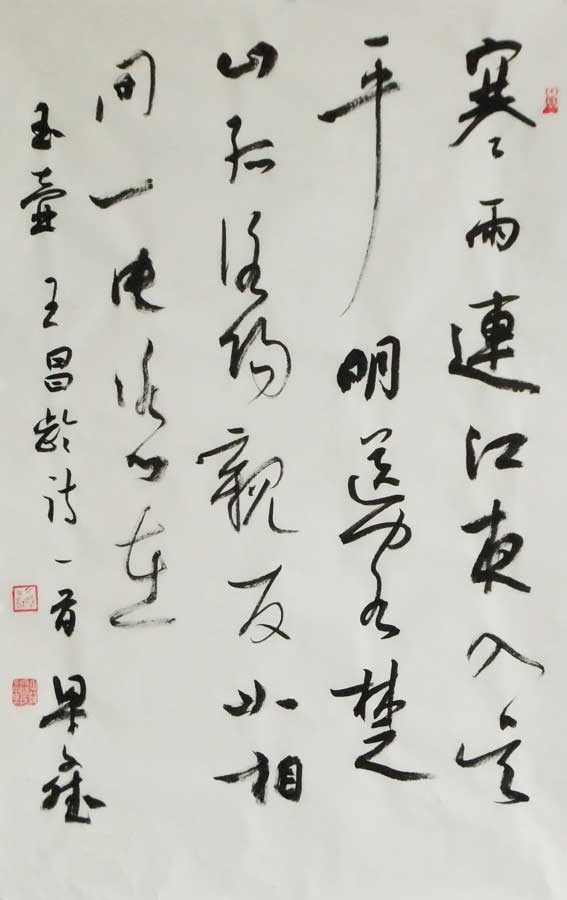 寒雨連江夜入吳
平明送客楚
山孤洛陽親友如相
問一片冰心在
玉壺 王昌齡詩一首